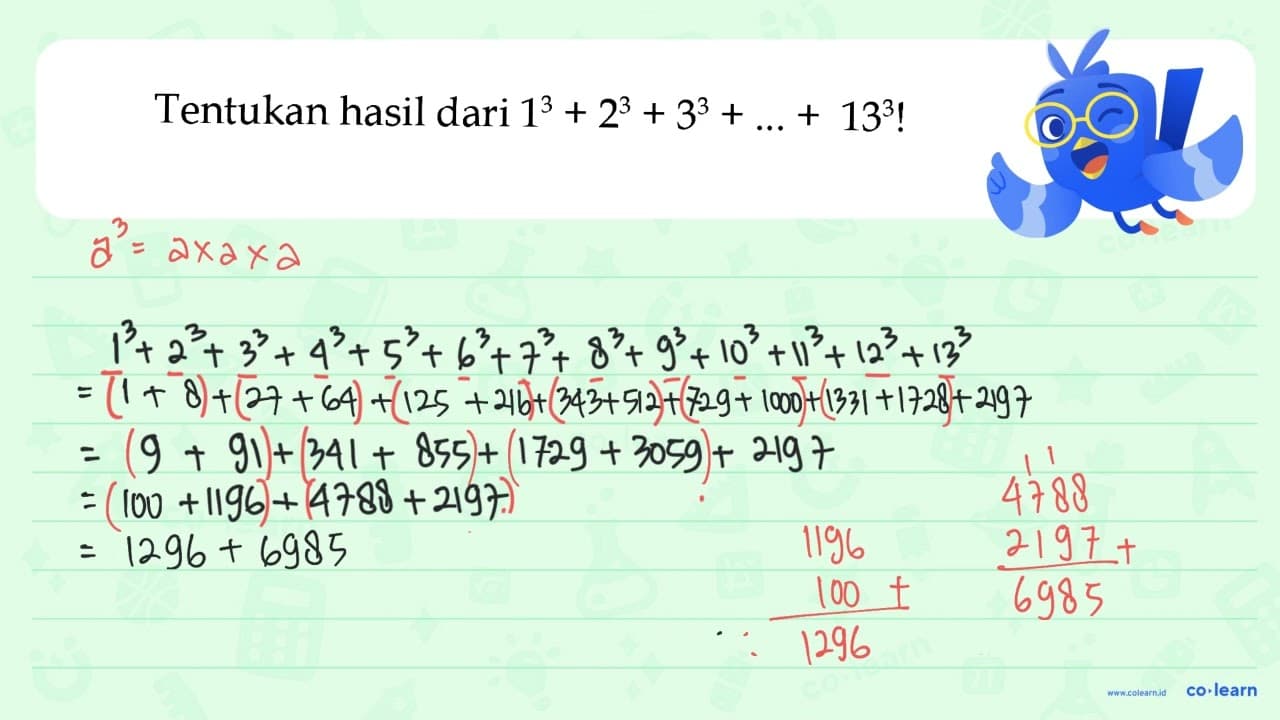 Tentukan hasil dari 1³ + 2³ + 3³ + ... + 13³!
a³ = a × a × a
1³ + 2³ + 3³ + 4³ + 5³ + 6³ + 7³ + 8³ + 9³ + 10³ + 11³ + 12³ + 13³
= (1 + 8) + (27 + 64) + (125 + 216) + (343 + 512) + (729 + 1000) + (1331 + 1728) + 2197
= (9 + 91) + (341 + 855) + (1729 + 3059) + 2197
= (100 + 1196) + (4788 + 2197)
= 1296 + 6985
1196
100 +
1296
1 1
4788
2197 +
6985
www.colearn.id co·learn